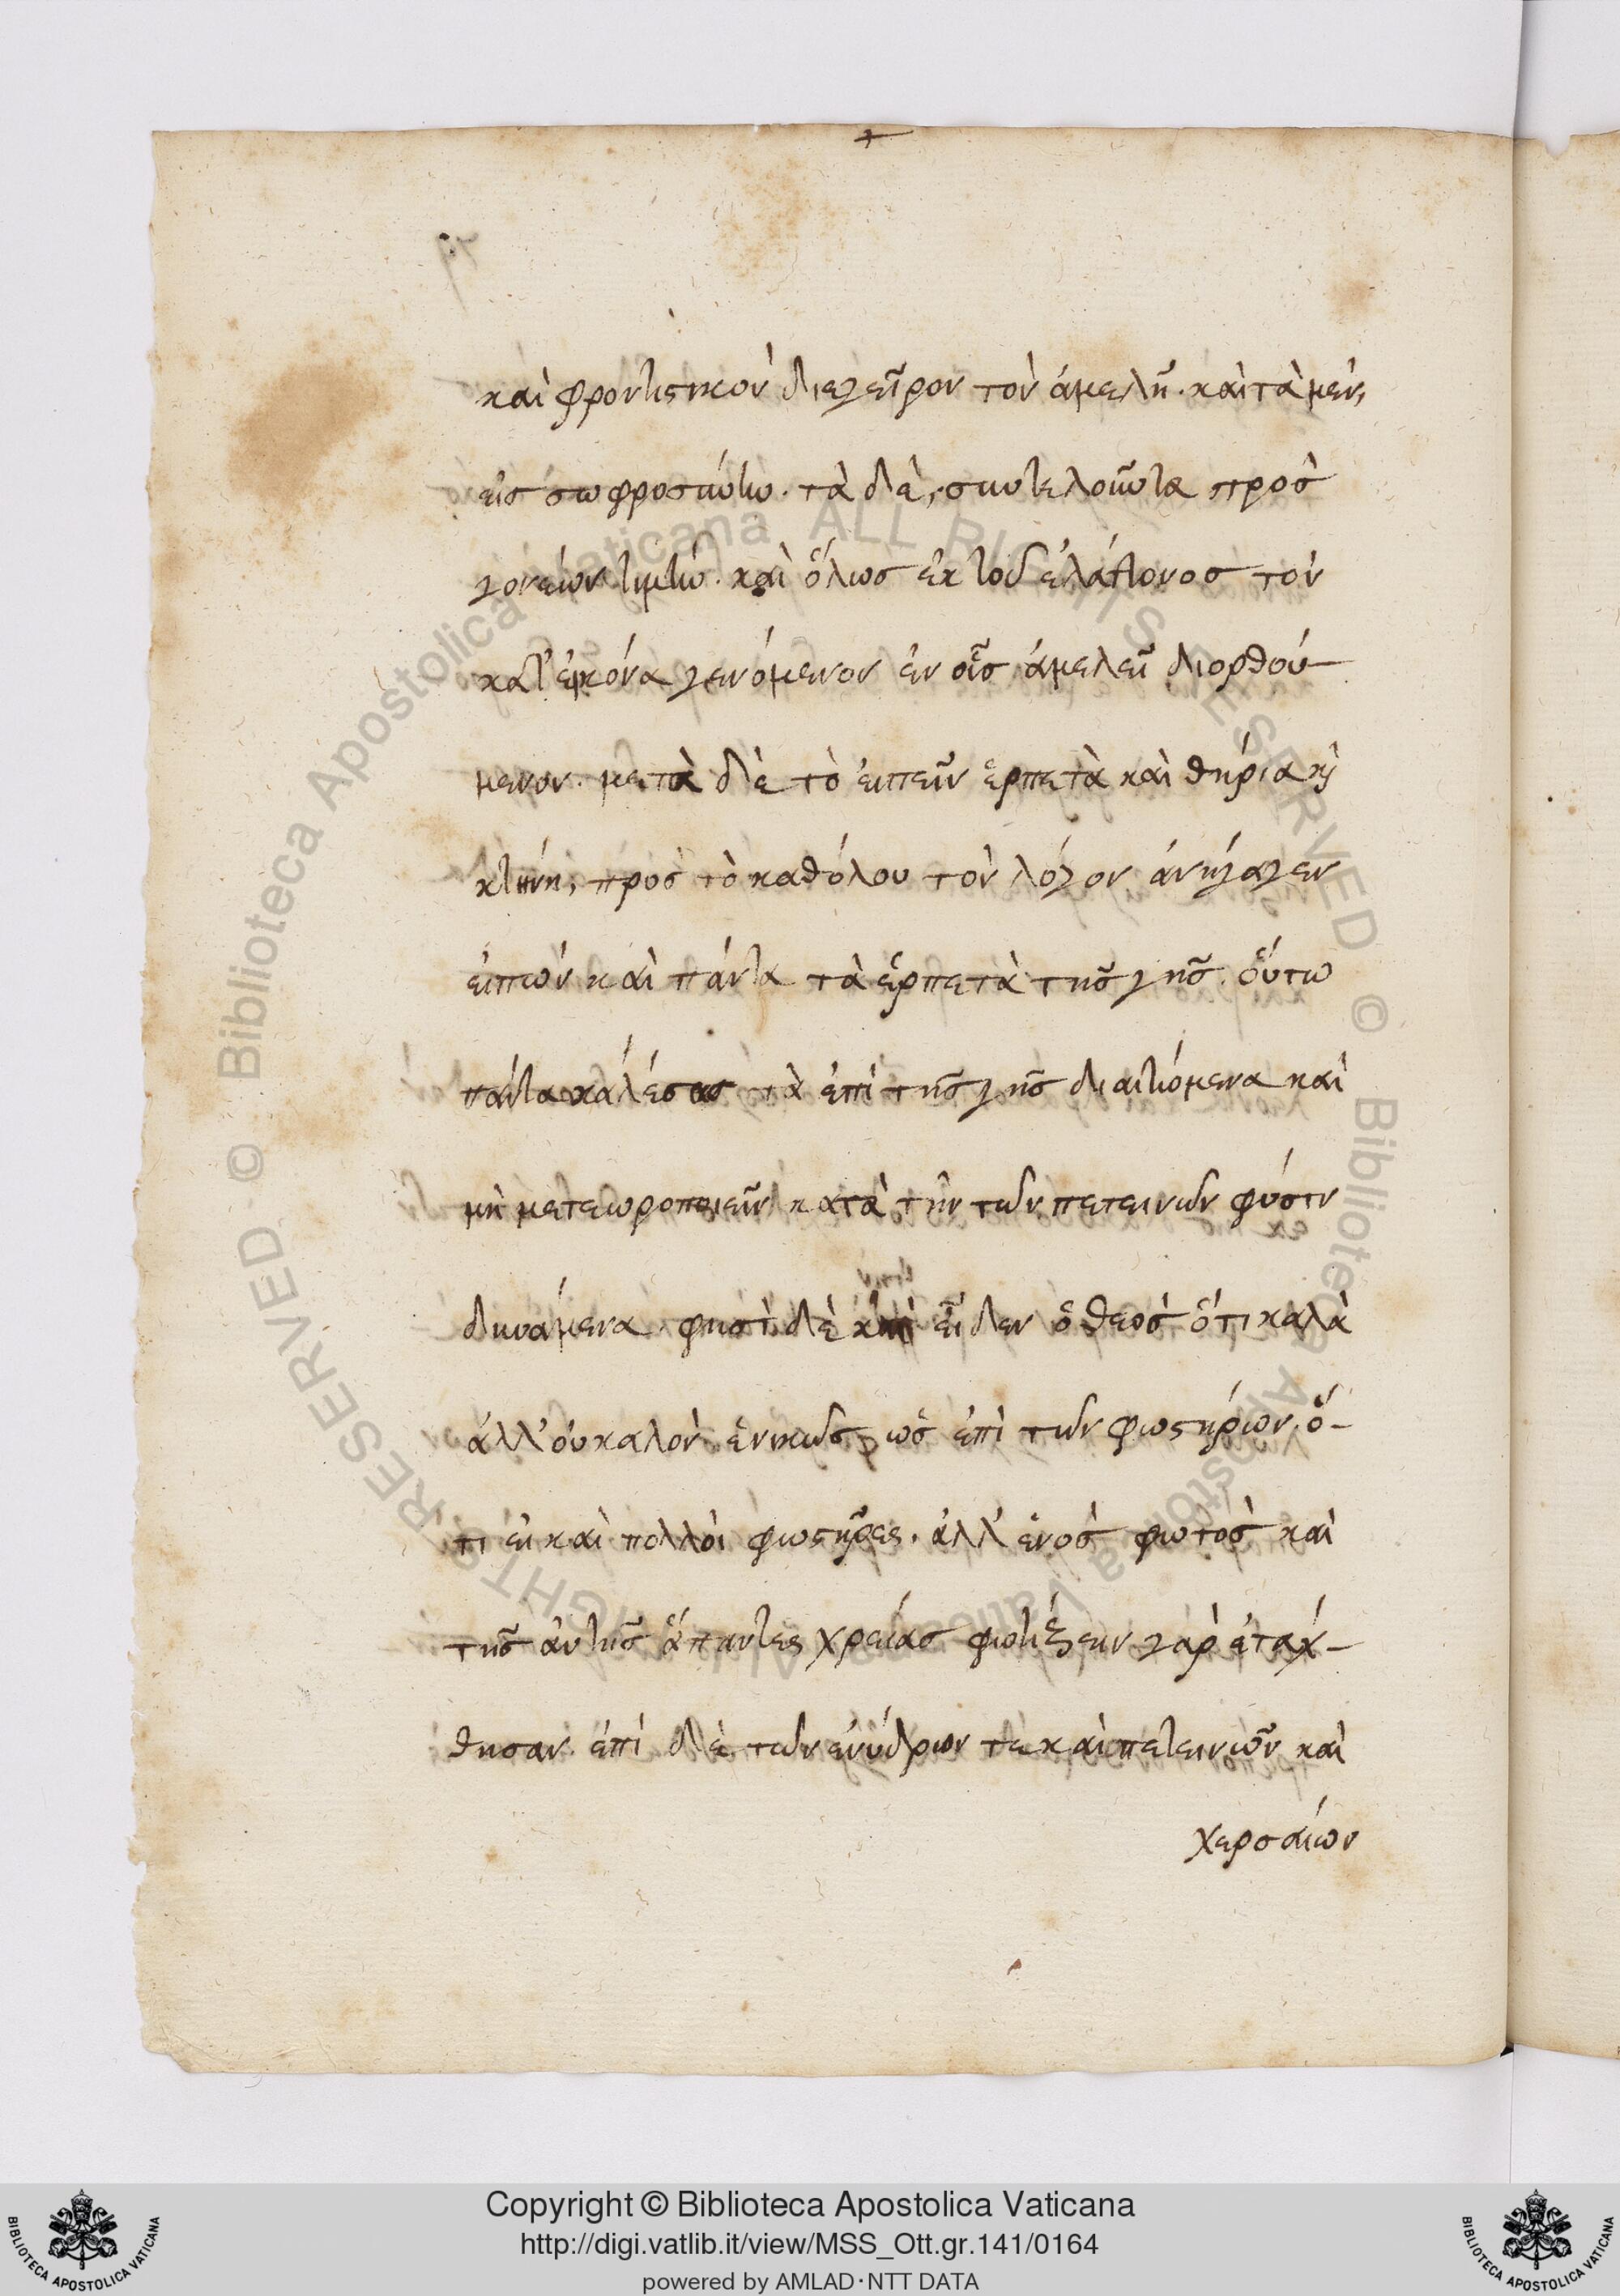 καὶ φροντιστικὸν διεγεῖρον τὸν ἀμελῆ. καὶ τὰ μὲν,
εἰς σωφροσύνην. τὰ δὲ, συντελοῦντα πρὸς
γονέων τιμὴν. καὶ ὅλως ἐκ τοῦ ἐλάττονος τὸν
κατ' εἰκόνα γενόμενον ἐν οἷς ἀμελεῖ διορθού-
μενον. μετὰ δὲ τὸ εἰπεῖν ἑρπετὰ καὶ θηρία κ̀
κτήνη, πρὸς τὸ καθόλου τὸν λόγον ἀνήγαγεν
εἰπὼν καὶ πάντα τὰ ἑρπετὰ τῆς γῆς. οὕτω
πάντα καλέσας τὰ ἐπὶ τῆς γῆς διαιτώμενα καὶ
μὴ μετεωροποιεῖν κατὰ τὴν τῶν πετεινῶν φύσιν
δυνάμενα. φησὶ δὲ καὶ εἶδεν ὁ θεὸς ὅτι καλὰ
ἀλλ' οὐ καλὸν ἑνικῶς, ὡς ἐπὶ τῶν φωστήρων. ὅ-
τι εἰ καὶ πολλοὶ φωστῆρες. ἀλλ' ἑνὸς φωτὸς καὶ
τῆς αὐτῆς ἅπαντες χρείας φωτίζειν γὰρ ἐτάχ-
θησαν. ἐπὶ δὲ τῶν ἐνύδρων τε καὶ πετεινῶν καὶ
χερσαίων
Copyright © Biblioteca Apostolica Vaticana
http://digi.vatlib.it/view/MSS_Ott.gr.141/0164
powered by AMLAD·NTT DATA
BIBLIOTECA APOSTOLICA VATICANA
BIBLIOTECA APOSTOLICA VATICANA
© Biblioteca Apostolica Vaticana ALL RIGHTS RESERVED © Biblioteca Apostolica Vaticana ALL RIGHTS RESERVED